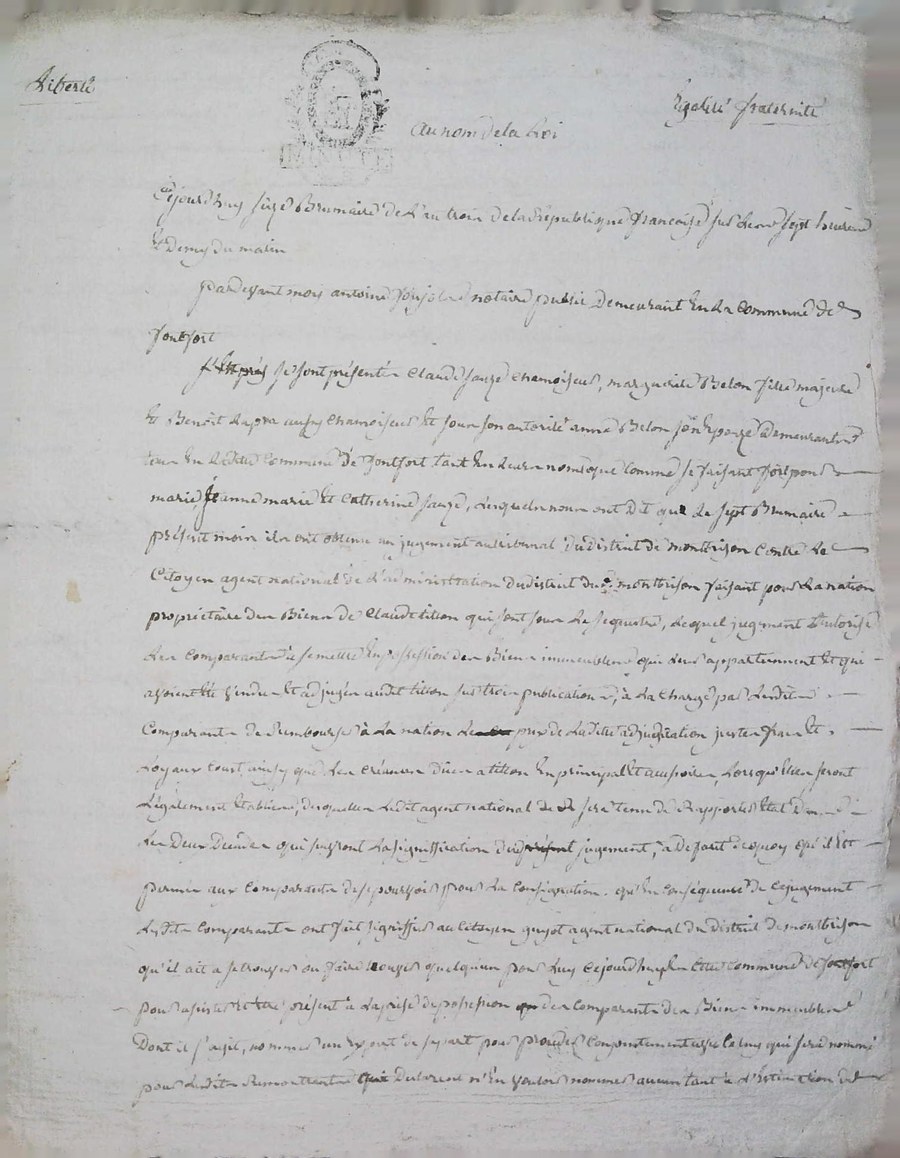 Liberté
Egalité fraternité
au nom de la Loi
Cejourdhuy seize Brumaire de l'an trois de la République françoise sur les sept heures
Et demy du matin
pardevant moy antoine notaire public demeurant En la commune de
fontfort
se sont présentés Claude sauzé chamoiseur, marguerite Belon fille majeure
Et Benoit Lapra aussy chamoiseur Et sous son autorité anne Belon son Epouze demeurants
tous En laditte commune de fontfort tant En leurs noms que comme se faisant fort pour
marie, Jeanne marie Et Catherine sauzé, Lesquels nous ont dit que le sept Brumaire
présent mois ils ont obtenu un jugement au tribunal du district de montbrison contre le
Citoyen agent national de l'administration du district de montbrison faisant pour la nation
propriétaire des Biens de Claude tillon qui sont sous le sequestre, Lequel jugement autorise
les comparants à se mettre En possession des Biens immeubles qui leur appartiennent Et qui
avoient été vendus Et adjugés audit tillon sur trois publications, à la charge par lesdits
Comparants de Rembourser à la nation le prix de laditte adjudication justes frais Et
Loyaux Cousts ainsy que les créances dues a tillon En principal Et accessoires, Lorsqu'elles seront
Légalement Etablies, desquelles ledit agent national sera tenu de Rapporter Etat dans
les deux Decades qui suivront la signiffication dud jugement, à deffaut de quoy il Est
permis aux Comparants de se pourvoir pour la consignation. qu'En conséquence de ce jugement
Lesdits comparants ont fait signiffier au Citoyen guyot agent national du district de montbrison
qu'il ait a se trouver ou faire trouver quelqu'un pour luy cejourdhuy En cette commune de fontfort
pour assister Et être présent à la prise de possession des comparants des Biens immeubles
Dont il s'agit, nommer un Expert de sa part pour proceder Conjointement avec celuy qui sera nommé
pour lesdits Remontrants declarent n'En vouloir nommer aucun tant à